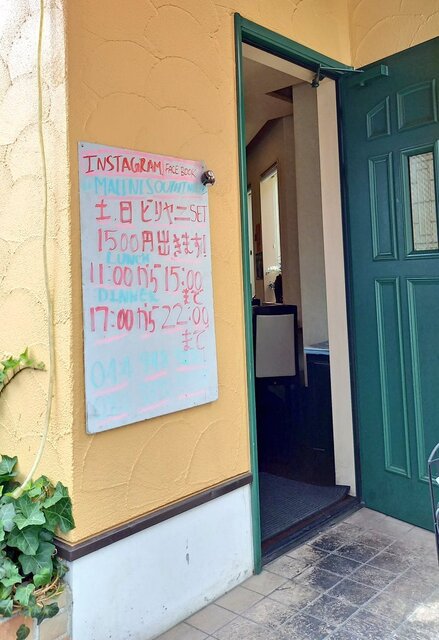 INSTAGRAM FACE BOOK
土.日 ビリヤニSET
1500円出きます!
LUNCH
11:00から15:00
まで
DINNER
17:00から22:00
まで